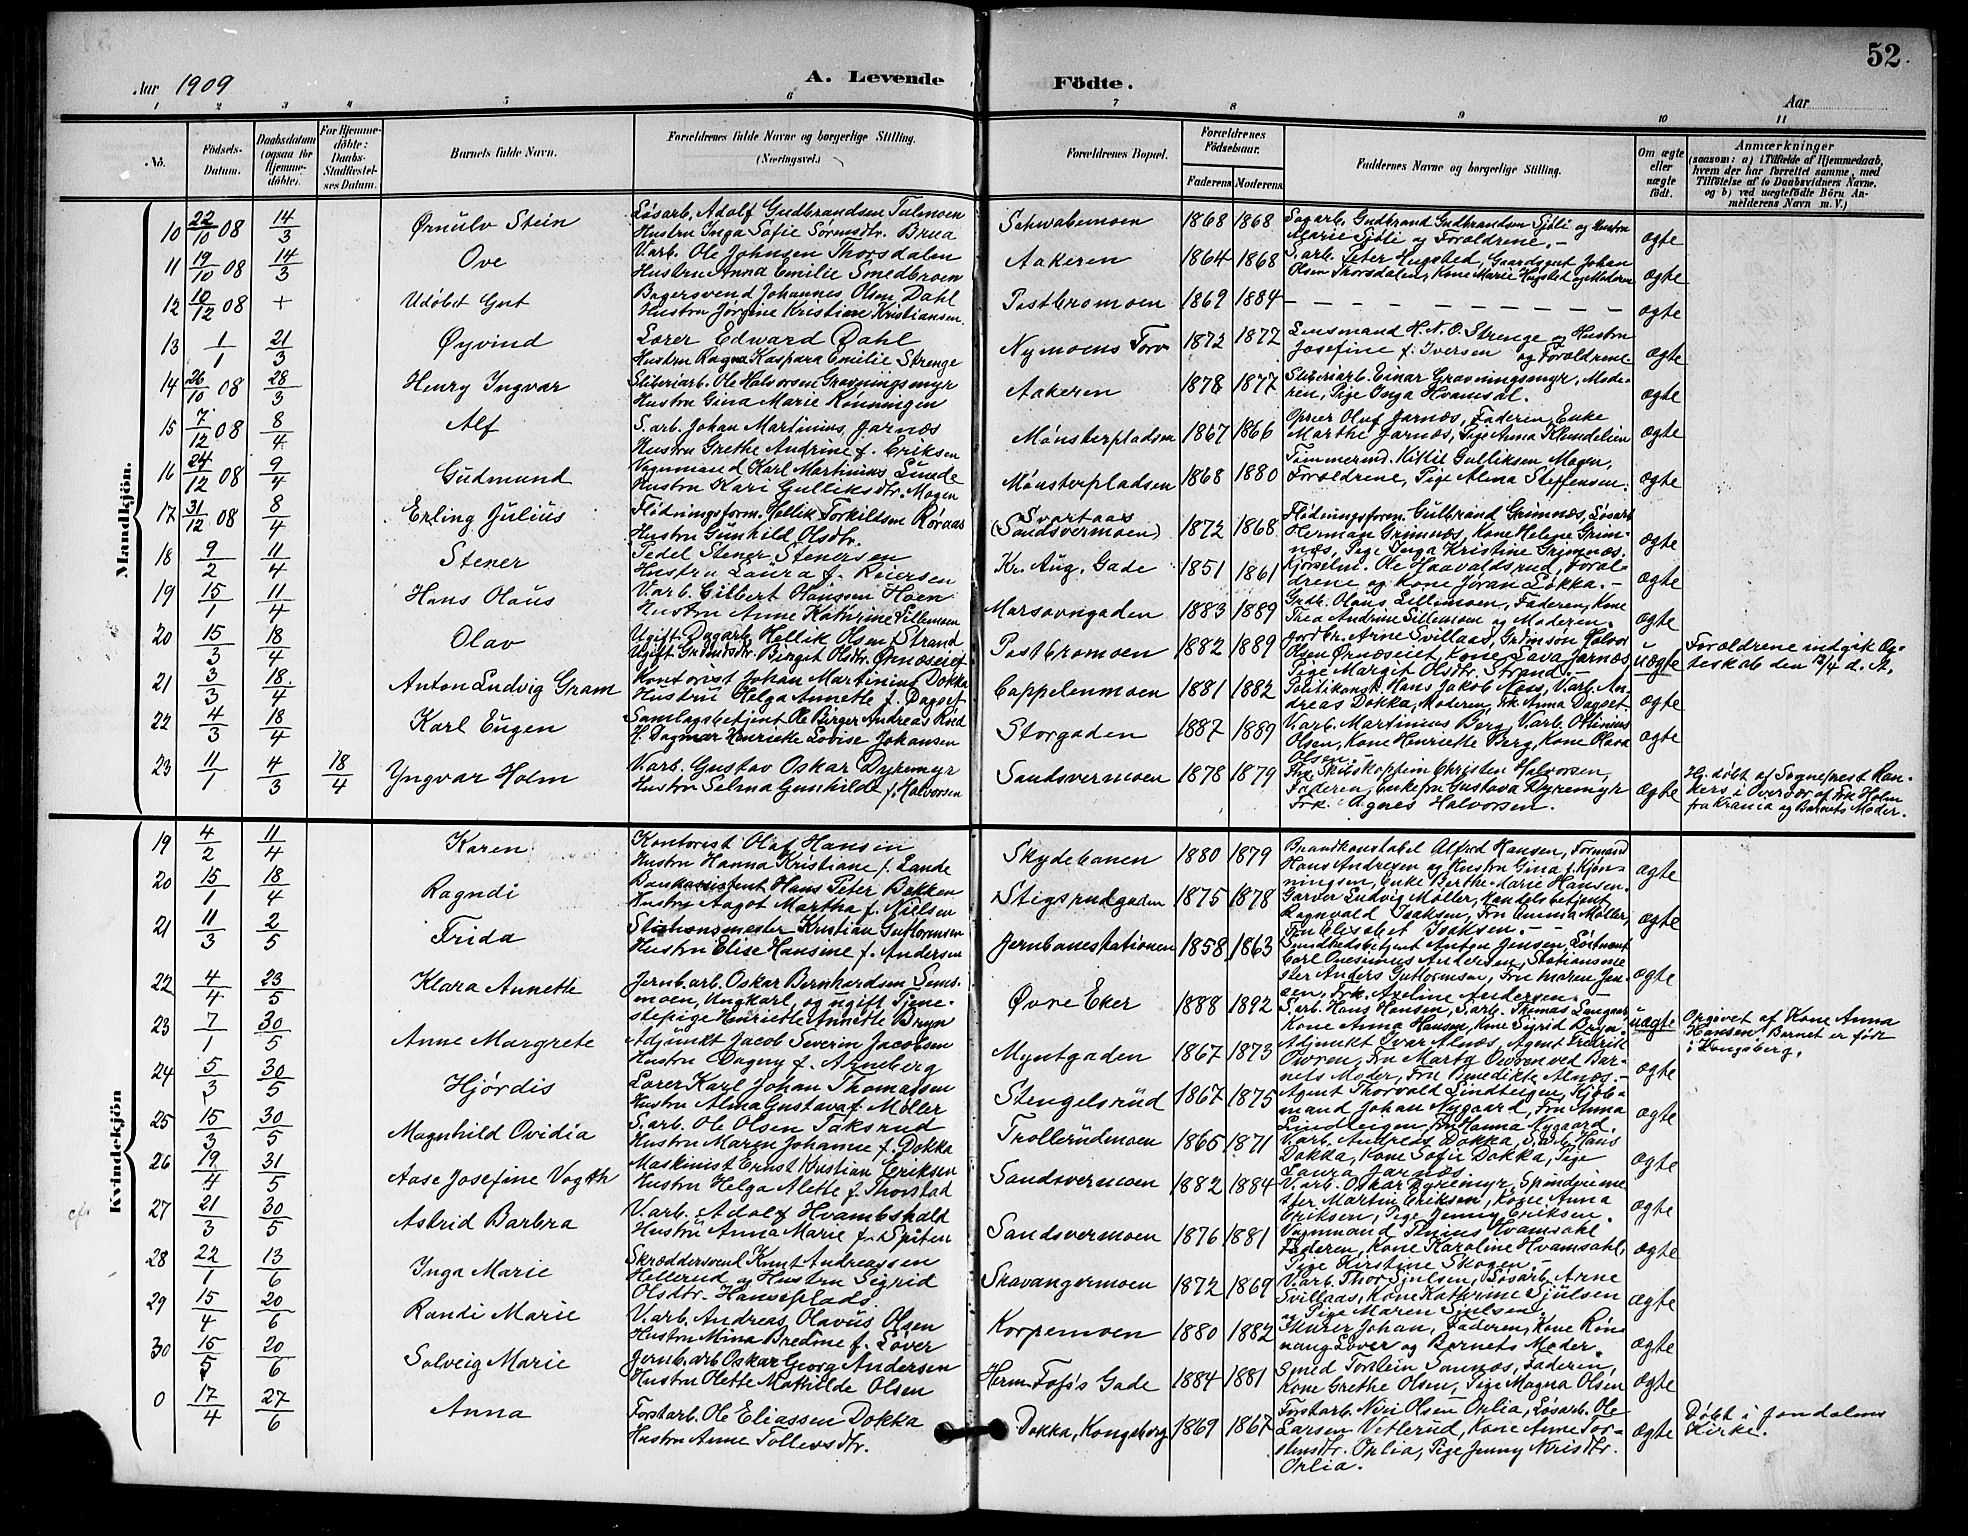 52.
Aar 1909
A. Levende Födte.
Aar
1 2 3 4 5 6 7 8 9 10 11
No.
Födsels-Datum.
Daabsdatum (ogsaa for Hjemmedöbte).
For Hjemmedöbte: Daabs-Stadfæstelses Datum.
Barnets fulde Navn.
Forældrenes fulde Navne og borgerlige Stilling. (Næringsvei.)
Forældrenes Bopæl.
Forældrenes Födselsaar.
Faderens Moderens
Faddernes Navne og borgerlige Stilling.
Om ægte eller uægte födt.
Anmærkninger
(saasom: a) i Tilfælde af Hjemmedaab, hvem der har forrettet samme, med Tilföielse af to Daabsvidners Navne, og b) ved uægtefödte Börn Anmelderens Navn m. V.)
Mandkjön.
10 22/10 08 14/3 Ørnulv Stein
Løsarb. Adolf Gudbrandsen Tulmoen
Hustru Inga Sofie Sorensdtr. Brua
Schwabemoen 1868 1868
Sagarb. Gudbrand Gudbrandsen Sjøli og Hustru
Marie Sjøli og Forældrene. - ægte
11 19/10 08 14/3 Ove
V.arb. Ole Johnsen Thorsdalen
Hustru Anna Emilie Smedbroen
Aakeren 1864 1868
S.arb. Peter Hugsted, Gaardsgut Johan
Olsen Thorsdalen, Kone Marie Hugsted og Moderen ægte
12 10/12 08 + Udøbt Gut
Bagersvend Johannes Olsen Dahl
Hustru Jørgine Kristiane Kristiansen.
Pastbromoen 1869 1884 - - - - - - - - ægte
13 1/1 21/3 Øyvind
Lærer Edward Dahl
Hustru Ragna Kaspara Emilie Strenge
Nymoens Torv 1872 1877
Lensmand H. N. O. Strenge og Hustru
Josefine f. Iversen og Forældrene ægte
14 26/10 08 28/3 Henry Ingvar
Sliberiarb. Ole Halvorsen Gravningsmyr
Hustru Gina Marie Rønningen
Aakeren 1878 1877
Sliberiarb. Einar Gravningsmyr, Mode-
ren, Pige Inga Hvamsal. ægte
15 7/12 08 8/4 Alf
S.arb. Johan Martinius Jarnæs
Hustru Grethe Andrine f. Eriksen
Mønsterpladsen 1867 1866
Opsier Oluf Jarnæs, Faderen, Enke
Marthe Jarnæs, Pige Anna Klundelien ægte
16 24/12 08 9/4 Gudmund
Vognmand Karl Martinius Lunde
Hustru Kari Gulliksdtr. Mogen
Mønsterpladsen 1868 1880
Tømmermd. Kittil Gulliksen Mogen,
Forældrene, Pige Alma Steffensen. ægte
17 31/12 08 8/4 Erling Julius
Flødningsform. Hellik Torkildsen Røraas
Hustru Gunhild Olsdtr.
Svartaas
(Sandsvermoen) 1872 1868
Flødningsform. Gulbrand Grimnæs, Løsarb.
Herman Grimnæs, Kone Helene Grim-
næs, Pige Inga Kristine Grimnæs. ægte
18 9/2 11/4 Stener
Pedel Stener Stenersen
Hustru Laura f. Reiersen
Kr. Aug. Gade 1851 1861
Kjørselm. Ole Haavaldsrud, Foræl-
drene og Kone Jøran Løkka. - ægte
19 15/1 11/4 Hans Olaus
V.arb. Gilbert Olausen Hoen
Hustru Anne Kathrine Lillemoen
Marsovngaden 1883 1889
Grdb. Olaus Lillemoen, Faderen, Kone
Thea Andrine Lillemoen og Moderen. ægte
20 15/3 18/4 Olav
Ugift Dagarb. Hellik Olsen Strand
Ugift Grdmdsdtr. Birgit Olsdtr. Ørnæseiet
Pastbromoen 1882 1889
Jordbr. Arne Svillaas, Grdmsøn Halvor
Olsen Ørnæseiet, Kone Sava Jarnæs,
Pige Margit Olsdtr. Strand. - uægte
Forældrene indgik Æg-
teskab den 12/4 d. A.
21 3/3 18/4 Anton Ludvig Gram
Kontorist Johan Martinius Dokka
Hustru Helga Annette f. Dagset
Cappelenmoen 1881 1882
Politikonst. Hans Jakob Næss, V.arb. An-
dreas Dokka, Moderen, Frk. Anna Dagset ægte
22 4/3 18/4 Karl Eugen
Samlagsbetjent Ole Birger Andreas Roed
H. Dagmar Henriette Lovise Johansen
Storgaden 1887 1889
V.arb. Martinius Berg, V.arb. Otinius
Olsen, Kone Henriette Berg, Kone Olava
Olsen. ægte
23 11/1 4/3 18/4 Yngvar Holm
V.arb. Gustav Oskar Dyremyr
Hustru Selma Gunhilde f. Halvorsen
Sandsvermoen 1878 1879
Fhv. Skibskaptein Christen Halvorsen,
Faderen, Enkefru Gustava Dyremyr
Frk. Agnes Halvorsen. ægte
Hj. døbt af Sognepræst
i af Frk. Holm
fra Krania og Barnets Moder.
Kvindekjön
19 4/2 11/4 Karen
Kontorist Olaf Hansen
Hustru Hanna Kristiane f. Lande
Skydebanen 1880 1879
Brandkonstabel Alfred Hansen, Formand
Hans Andresen og Hustru Gina f. Kjøn-
ningsen, Enke Berthe Marie Hansen. ægte
20 15/1 18/4 Ragndi
Bankassistent Hans Peter Bakken
Hustru Aagot Martha f. Nielsen
Stigsrudgaden 1875 1878
Garver Ludvig Møller, Handelsbetjent
Ragnvald Isaksen, Fru Emma Møller,
Frk. Elisabet Isaksen. - - ægte
21 11/3 2/5 Frida
Stationsmester Kristian Guttormsen
Hustru Elise Hansine f. Andersen
Jernbanestationen 1858 1863
Sundhedsbetjent Anton Jensen, Løitnant
Carl Onesimus Andersen, Stationsme-
ster Anders Guttormsen, Fru Maren Jen-
sen, Frk. Axeline Andersen. - ægte
22 4/4 23/5 Klara Annette
Jernb.arb. Oskar Bernhardsen Lens-
moen, Ungkarl, og ugift Tjene-
stepige Henriette Annette Bryn
Øvre Eker 1888 1892
S.arb. Hans Hansen, S.arb. Thomas Langaas,
Kone Anna Hansen, Kone Sigrid Bryn uægte
Opgivet af Kone Anna
Hansen. Barnet er født
i Kongsberg.
23 7/1 30/5 Anne Margrete
Adjunkt Jacob Severin Jacobsen
Hustru Dagny f. Arneberg
Myntgaden 1867 1873
Adjunkt Ivar Alnæs, Agent Fredrik
Owren, Fru Marty Owren ved Bar-
nets Moder, Fru Benedikte Alnæs. - ægte
24 5/3 30/5 Hjørdis
Lærer Karl Johan Thomassen
Hustru Alma Gustava f. Møller
Stengelsrud 1867 1875
Agent Thorvald Lindteigen, Kjøb-
mand Johan Nygaard, Fru Anna
Lindteigen, Fru Hanna Nygaard. ægte
25 15/3 30/5 Magnhild Ovidia
S.arb. Ole Olsen Taksrud
Hustru Maren Johanne f. Dokka
Trollerudmoen 1865 1871
V.arb. Andreas Dokka, S.arb. Hans
Dokka, Kone Sofie Dokka, Pige
Laura Jarnæs. ægte
26 19/4 31/5 Aase Josefine Vogth
Maskinist Ernst Kristian Eriksen
Hustru Helga Alette f. Thorstad
Sandsvermoen 1882 1884
V.arb. Oskar Dyremyr, Spindeime-
ster Martin Eriksen, Kone Anna
Eriksen, Pige Jenny Eriksen. ægte
cfr. 27 21/3 30/5 Astrid Barbra
V.arb. Adolf Hvambsdahl
Hustru Anna Marie f. Spiten
Sandsvermoen 1876 1881
Vognmand Tinius Hvamsahl
Faderen, Kone Karoline Hvamsahl,
Pige Kirstine Skogen. - ægte
28 22/1 13/6 Inga Marie
Skræddersvend Knut Andreassen
Hellerud og Hustru Sigrid
Olsdtr. Hanseplads
Skavangermoen 1872 1869
V.arb. Thor Sjulsen, Løsarb. Arne
Svillaas, Kone Kathrine Sjulsen
Pige Maren Sjulsen. ægte
29 15/4 20/6 Randi Marie
V.arb. Andreas Olavus Olsen
Hustru Mina Bredine f. Løver
Korpemoen 1880 1882
Skurer Johan, Faderen, Kone Røn-
naug Løver og Barnets Moder. ægte
30 15/5 20/6 Solveig Marie
Jernb.arb. Oskar Georg Andersen
Hustru Olette Mathilde Olsen
Herm. Foss's Gade 1884 1881
Smed Torstein Sannæs, Faderen,
Kone Grethe Olsen, Pige Magna Olsen ægte
0 17/4 27/6 Anna
Forstarb. Ole Eliassen Dokka
Hustru Anne Tollevsdtr.
Dokka, Kongsberg 1869 1867
Forstarb. Niri Olsen Orlia, Løsarb. Ole
Larsen Vetlerud, Kone Anne Tor-
stensdtr. Orlia, Pige Jenny Nirisdtr.
Orlia. ægte
Døbt i Jondalens
Kirke.